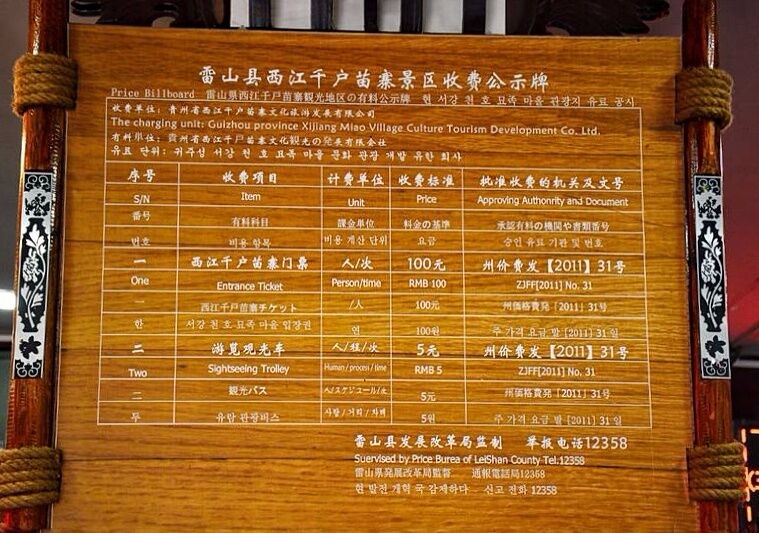 雷山县西江千户苗寨景区收费公示牌
Price Billboard 雷山県西江千戸苗寨観光地区の有料公示牌 현 서강 천 호 묘족 마을 관광지 유료 공시
收费单位：贵州省西江千户苗寨文化旅游发展有限公司
The charging unit: Guizhou province Xijiang Miao Village Culture Tourism Development Co. Ltd.
有料単位：貴州省西江千戸苗寨文化観光の発展有限会社
유료 단위: 귀주성 서강 천 호 묘족 마을 문화 관광 개발 유한 회사
序号 收费项目 计费单位 收费标准 批准收费的机关及文号
S/N Item Unit Price Approving Authonrity and Document
番号 有料科目 課金単位 料金の基準 承認有料の機関や書類番号
번호 비용 항목 비용 계산 단위 요금 승인 유료 기관 및 번호
一 西江千户苗寨门票 人/次 100元 州价费发【2011】31号
One Entrance Ticket Person/time RMB 100 ZJFF[2011] No. 31
一 西江千戸苗寨チケット /人 100元 州価格費発「2011」31号
한 서강 천 호 묘족 마을 입장권 연 100원 주 가격 요금 발 [2011] 31 일
二 游览观光车 人/程/次 5元 州价费发【2011】31号
Two Sightseeing Trolley Human / process / time RMB 5 ZJFF[2011] No. 31
二 観光バス 人/スケジュール/次 5元 州価格費発「2011」31号
두 유람 관광버스 사람 / 거리 / 차례 5원 주 가격 요금 발 [2011] 31 일
雷山县发展改革局监制 举报电话12358
Suervised by Price Burea of LeiShan County Tel.12358
雷山県発展改革局監督 通報電話局12358
현 발전 개혁 국 감제하다 - 신고 전화 12358